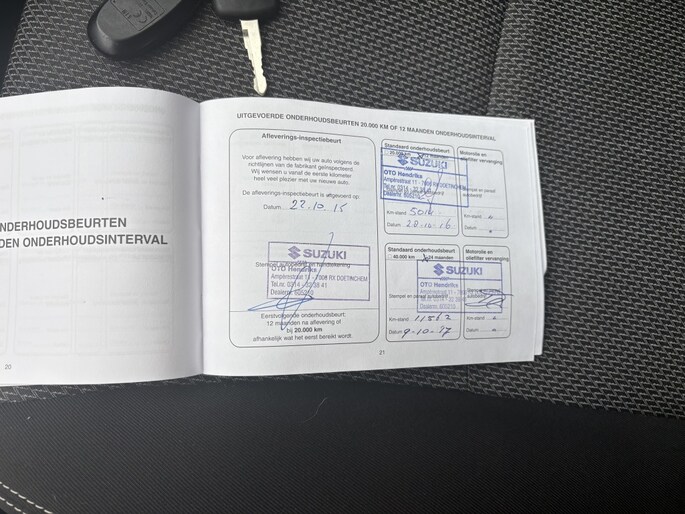 NDERHOUDSBEURTEN
DEN ONDERHOUDSINTERVAL
20
UITGEVOERDE ONDERHOUDSBEURTEN 20.000 KM OF 12 MAANDEN ONDERHOUDSINTERVAL
Afleverings-inspectiebeurt
Voor aflevering hebben wij uw auto volgens de
richtlijnen van de fabrikant geïnspecteerd.
Wij wensen u vanaf de eerste kilometer
heel veel plezier met uw nieuwe auto.
De afleverings-inspectiebeurt is uitgevoerd op:
Datum 22-10-15
SUZUKI
Stempel autobedrijf en handtekening
OTO Hendriks
Ampèrestraat 11 - 7006 RX DOETINCHEM
Tel.nr. 0314 - 32 38 41
Dealernr. 605210
Eerstvolgende onderhoudsbeurt:
12 maanden na aflevering of
bij 20.000 km
afhankelijk wat het eerst bereikt wordt.
Standaard onderhoudsbeurt
20.000 km
SUZUKI
OTO Hendriks
Ampèrestraat 11 - 7006 RX DOETINCHEM
Tel.nr. 0314 - 32 38 41
Dealernr. 605210
Km-stand
Datum 20-10-16
Motorolie en
oliefilter verversing
Km-stand
Datum
Standaard onderhoudsbeurt
40.000 km 24 maanden
SUZUKI
OTO Hendriks
Ampèrestraat 11 - 7006 RX DOETINCHEM
Tel.nr. 0314 - 32 38 41
Dealernr. 605210
Stempel en paraaf autobedrijf
Km-stand 11562
Datum 9-10-17
Motorolie en
oliefilter verversing
Km-stand
Datum
21